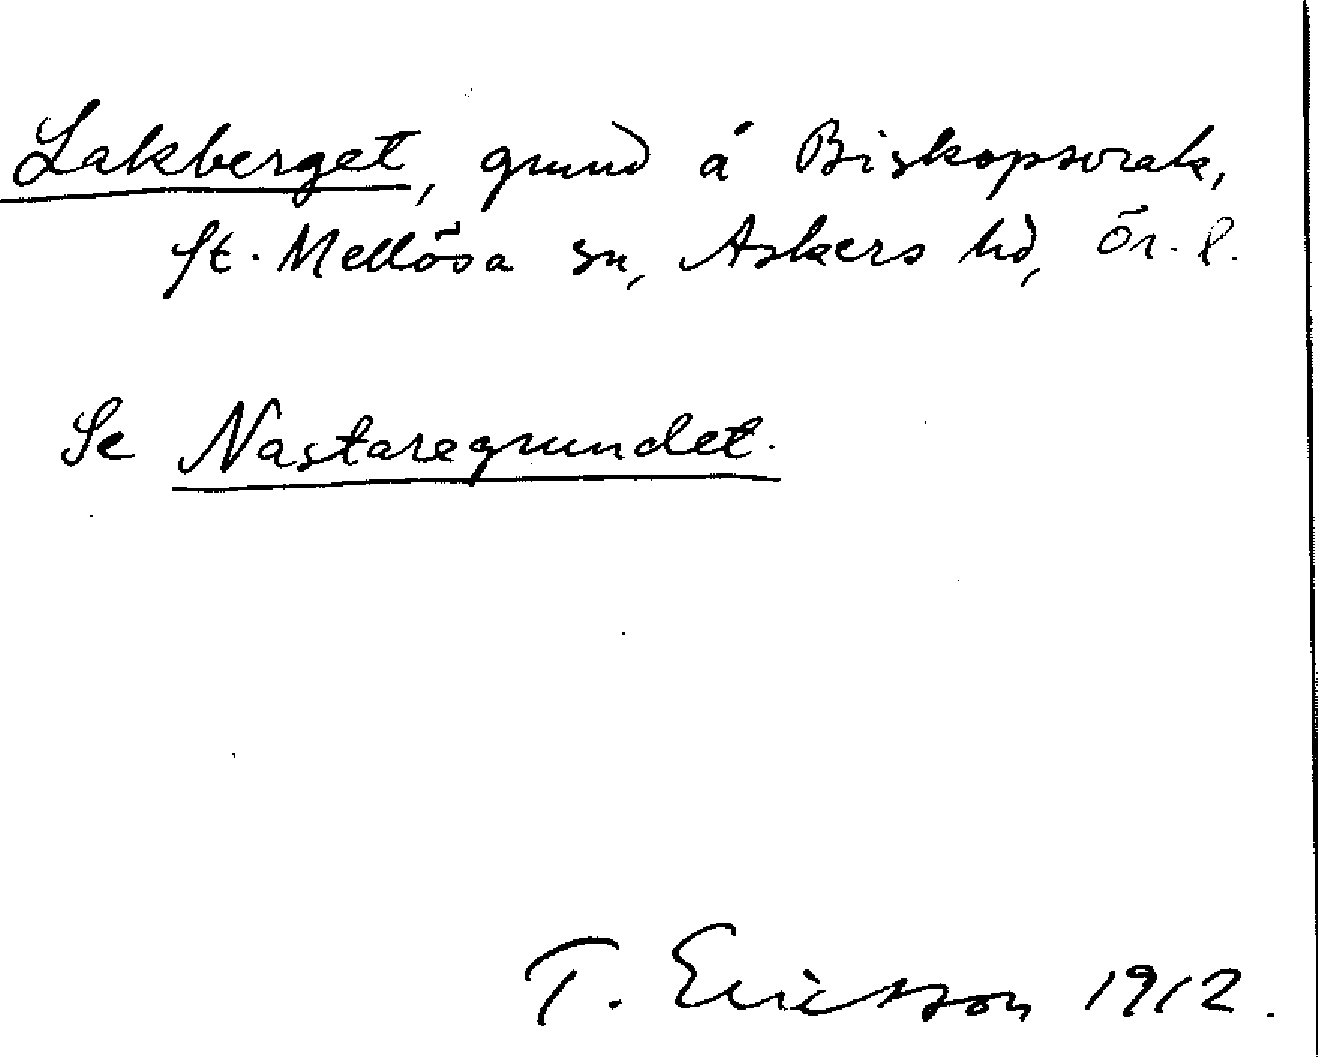 Lakberget, grund å Biskopsvrak,
St. Mellösa sn, Askers hd, Ör. l.
Se Nastaregrundet.
T. Ericsson 1912.